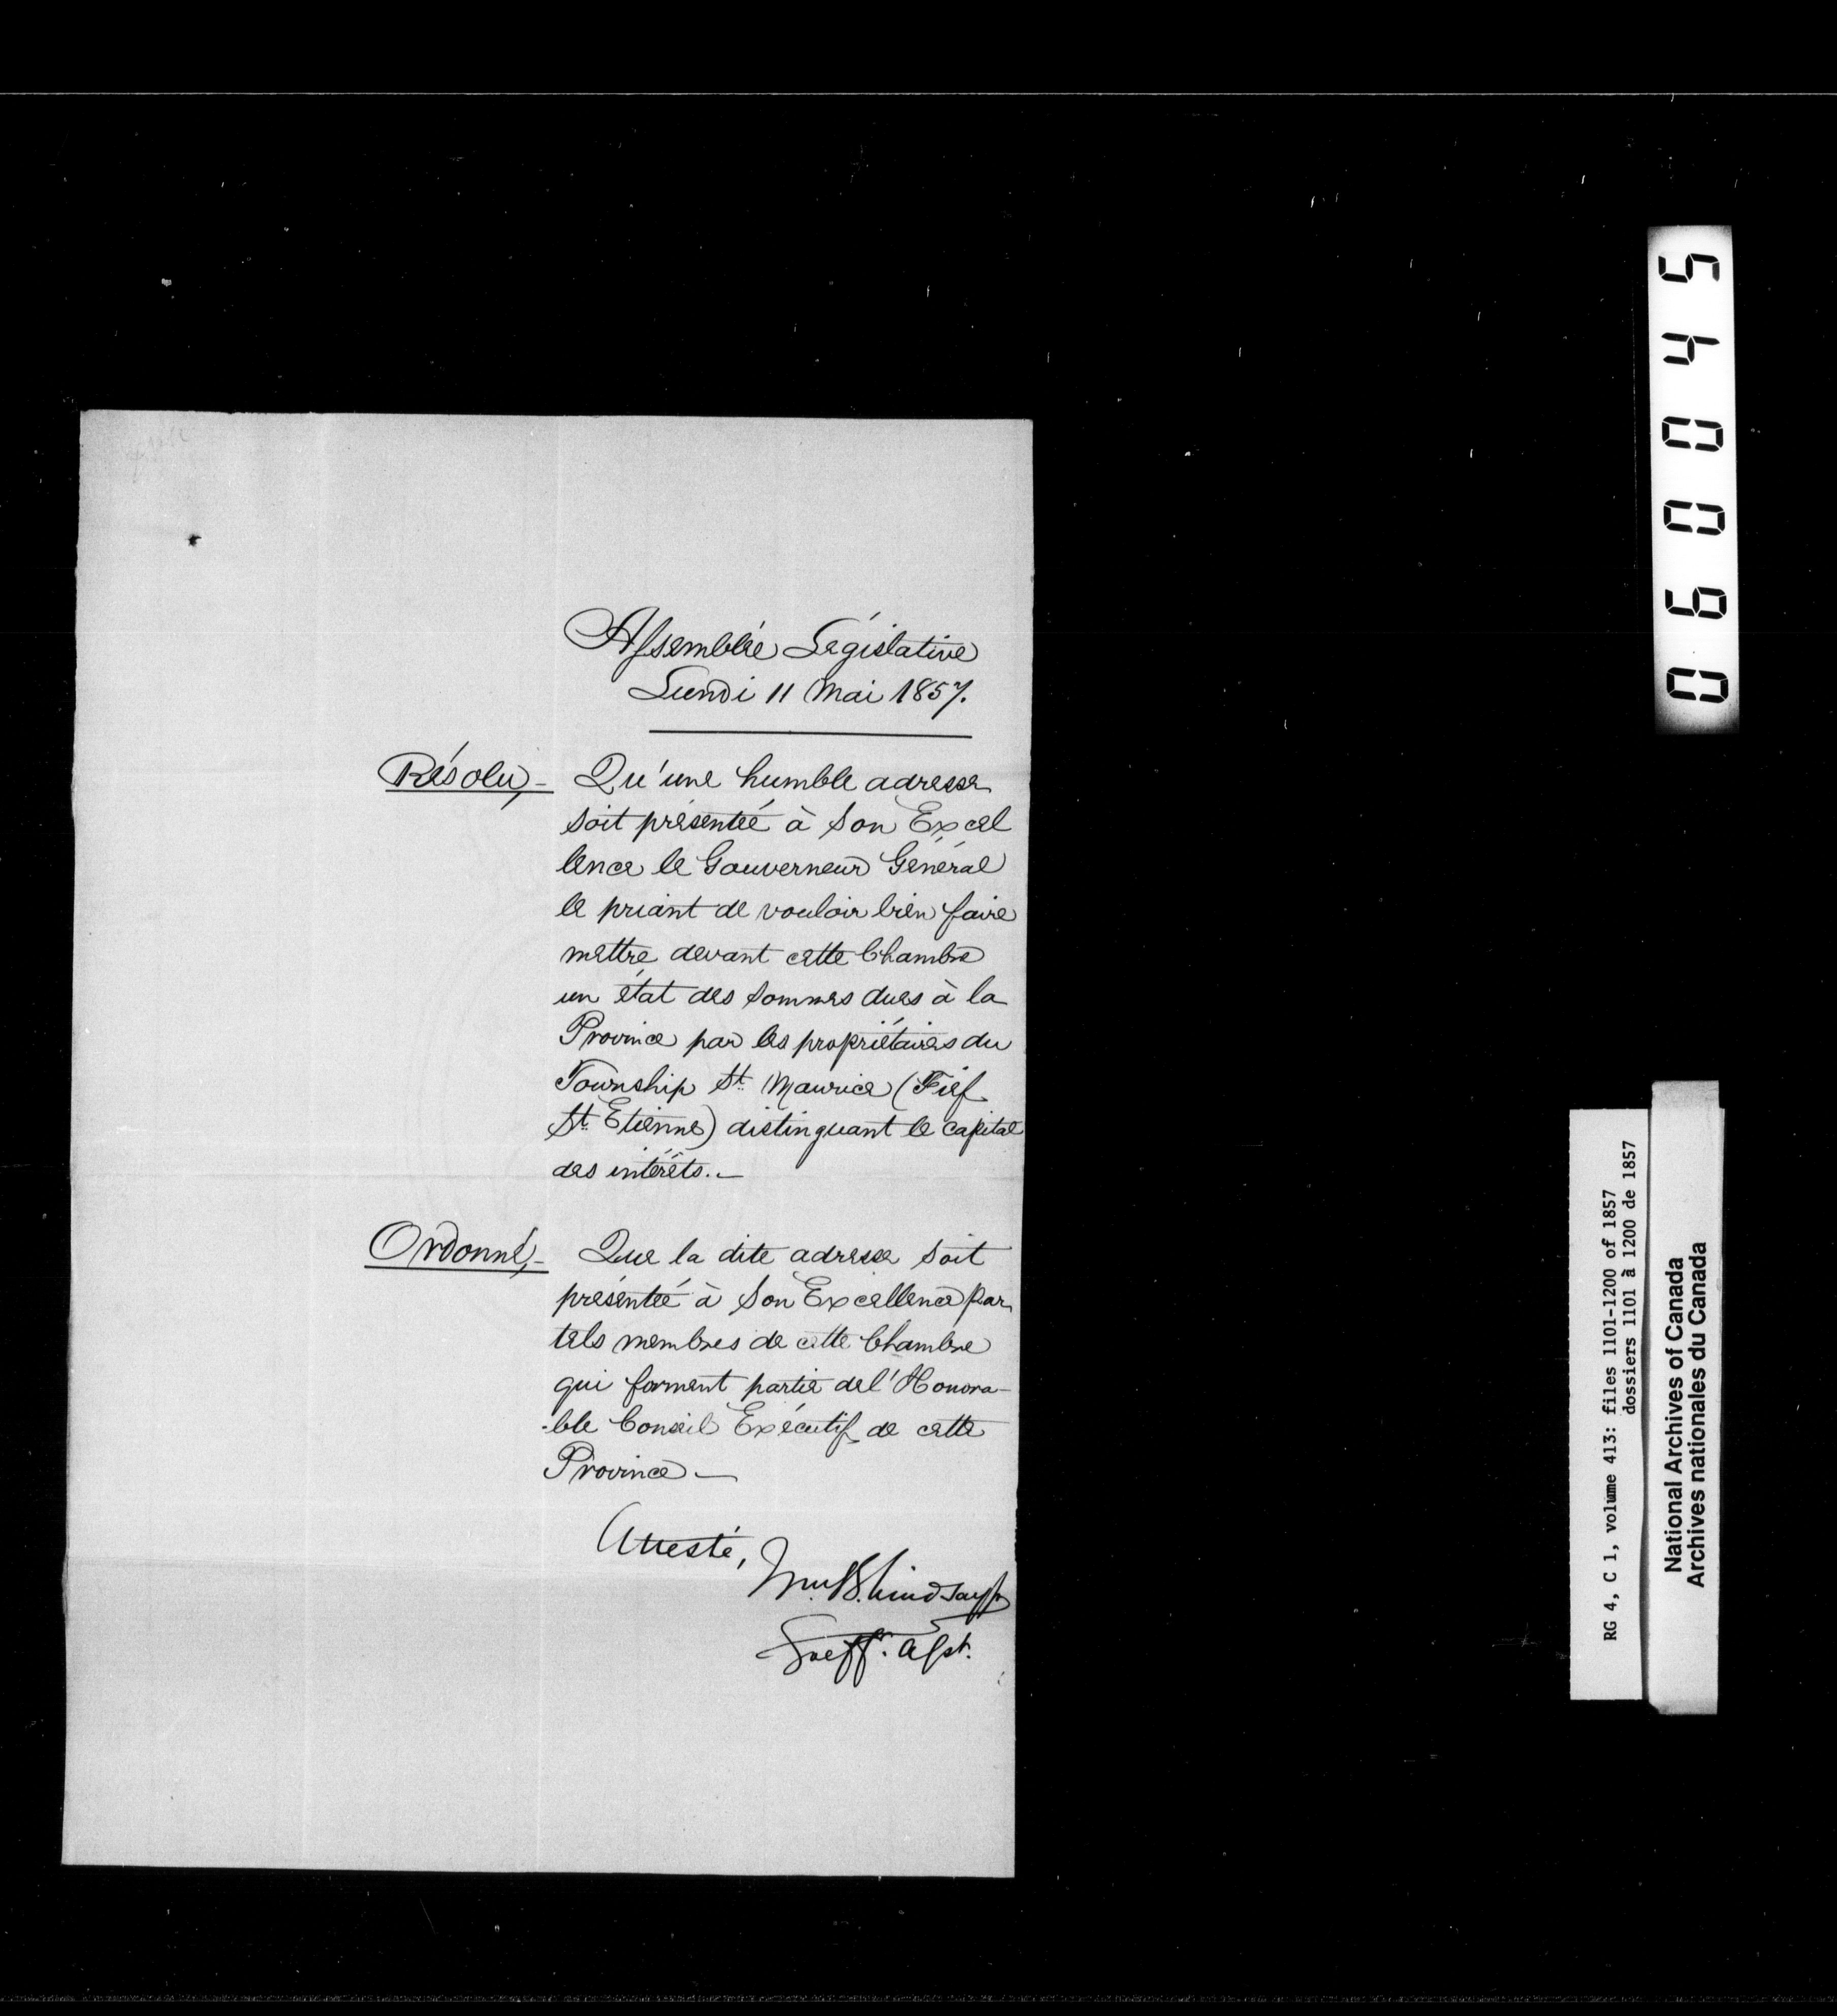 Assemblée Législative
Lundi 11 Mai 1857.
Résolu,- Qu'une humble adresse
soit présentée à Son Excel
lence le Gouverneur Général
le priant de vouloir bien faire
mettre devant cette Chambre
un état des sommes dues à la
Province par les propriétaires du
Township St. Maurice (Fief
St. Etienne) distinguant le capital
des intérêts.-
Ordonné,- Que la dite adresse soit
présentée à Son Excellence par
tels membres de cette Chambre
qui forment partie de l'Honora-
-ble Conseil Exécutif de cette
Province -
Attesté,
Wm. B. Lindsay Jr
Greff. Asst.
060045
RG 4, C 1, volume 413: files 1101-1200 of 1857
dossiers 1101 à 1200 de 1857
National Archives of Canada
Archives nationales du Canada